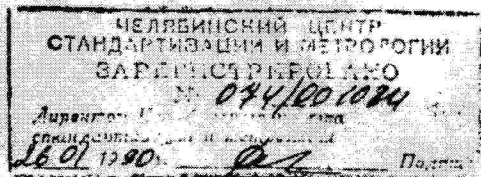 ЧЕЛЯБИНСКИЙ ЦЕНТР
СТАНДАРТИЗАЦИИ И МЕТРОЛОГИИ
ЗАРЕГИСТРИРОВАНО
№ 074/001024
Директор
стандартизации и метрологии
26 01 1990г.